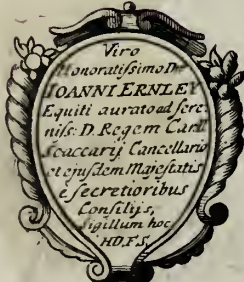 Viro
Honoratiſsimo Dno
IOANNI ERNLEY
Equiti aurato ad ſere
niſs: D. Regem Carol
Scaccarij Cancellario
et ejuſdem Majeſtatis
é ſecretioribus
Conſilijs,
ſigillum hoc
HD,F.S.